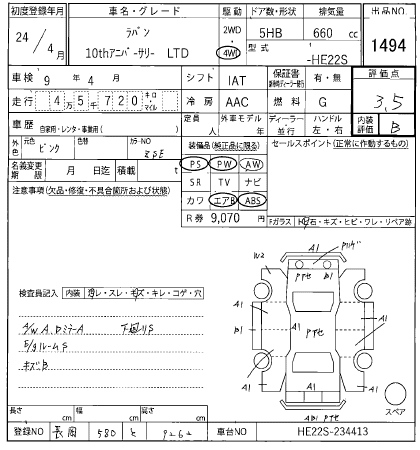 初度登録年月 車名・グレード 駆動 ドア数・形状 排気量 出品NO
24/4月 ラパン 10thアニバーサリー LTD 2WD・4WD 5HB 660 cc 1494
型式 -HE22S
車検 9年4月 シフト IAT 保証書 有・無 評価点
走行 45720 キロ・マイル 冷房 AAC 燃料 G 3.5
車歴 自家用・レンタ・事業用( ) 定員 人 外車モデル 年 ディーラー・並行 ハンドル 左・右 内装評価 B
外色 元色 ピンク 色替 カラーNO ZSE
装備品(純正品に限る) セールスポイント(正常に作動するもの)
名義変更期限 月 日迄 積載 t
PS PW AW
SR TV ナビ
カワ エアB ABS
R券 9,070 円
注意事項(欠品・修復・不具合箇所および状態)
Fガラス 飛石・キズ・ヒビ・ワレ・リペア跡
検査員記入 内装 ヨゴレ・スレ・キズ・キレ・コゲ・穴
A/W A. Dミラー A 下廻りS
E/ルームS
キズB
A1
W2
A1
B1
A1
A1
B1
A1
A1
A1
スペア
長さ cm 幅 cm 高さ cm
登録NO 長岡 580 と 9262 車台NO HE22S-234413